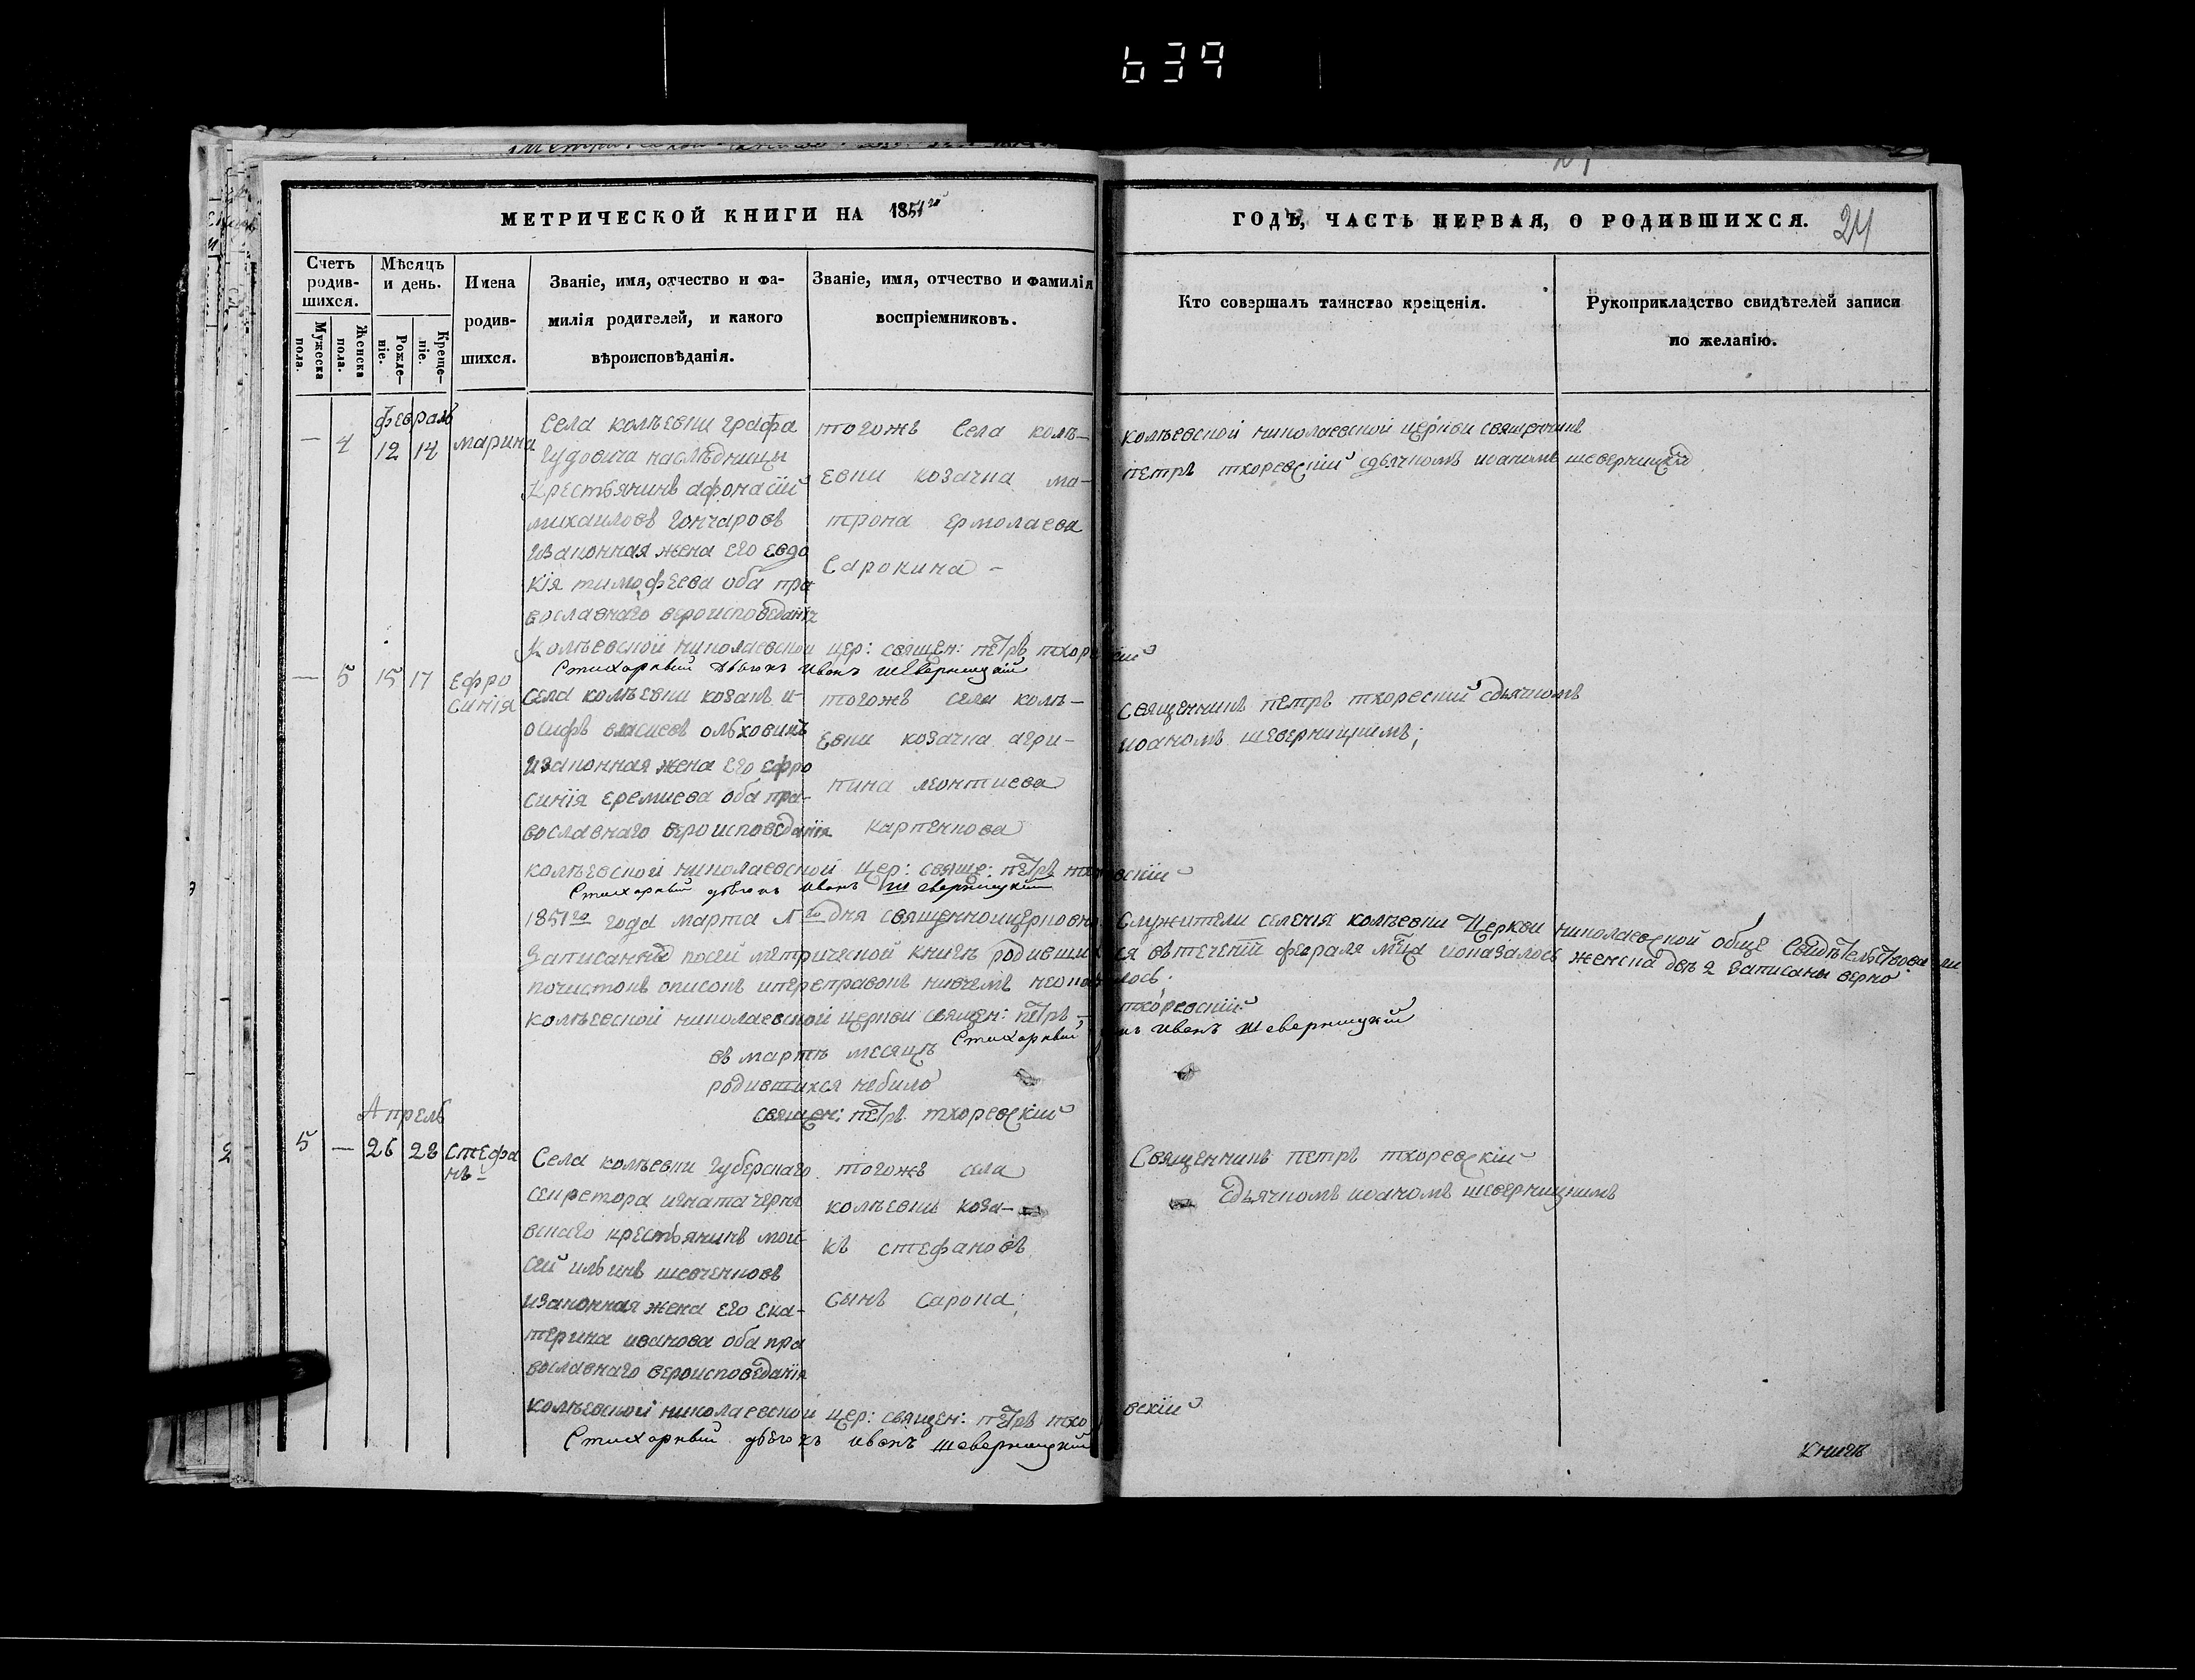 639
МЕТРИЧЕСКОЙ КНИГИ НА 1851го
ГОДЪ, ЧАСТЬ ПЕРВАЯ, О РОДИВШИХСЯ.
24
Счетъ родив-шихся.
Мужеска пола.
Женска пола.
Мѣсяцъ и день.
Рожде-ніе.
Креще-ніе.
Имена родив-шихся.
Званіе, имя, отчество и фа-
милія родителей, и какого
вѣроисповѣданія.
Званіе, имя, отчество и фамилія
воспріемниковъ.
Кто совершалъ таинство крещенія.
Рукоприкладство свидѣтелей записи
по желанію.
февраль
— 4 12 14 марина
Села колѣевки графа
Гудовича наслѣдницы
Крестьянинъ афонасій
михаиловъ гончаровъ
изаконная жена его евдо
кія тимофеева оба пра
вославнаго вероисповеданія
тогожъ Села колѣ-
евки козачка ма-
трона ермолаева
Сарокина -
колѣевской николаевской церкви священникъ
петръ тхоревскій здьячкомъ иоаномъ шеверницкій
Колѣевской николаевской цер: священ: петръ тхоре скій
Стихарный дьячкъ Иванъ Шеверницкій
— 5 15 17 ефро
синія
Села колѣевки козакъ и-
осифъ власиевъ ольховикъ
изаконная жена его ефро
синія еремиева оба пра-
вославнаго вероисповеданія
тогожъ села колѣ-
евки козачка агри-
пина леонтиева
карпенкова
Священникъ петръ тхорескій сдьячкомъ
иоаномъ шеверницкимъ;
колѣевской николаевской цер: свяще: петръ тхо вскій
Стихарный дьячкъ иванъ Шеверницкій
1851го года марта 1го дня священноицерковно Служители селенія колѣевки Церкви николаевской обще Свидѣтельствовали
Записанные посей метрической книгѣ родивши ся втеченій февраля мца ионазалось женска двѣ 2 записаны верно
почисткъ описокъ ипереправокъ нивчемъ неоказ лось;
колѣевской николаевской церкви священ: петръ - тхоревскій
Стихарный къ иванъ Шеверницкій
въ мартѣ месяцѣ
родившихся небило
священ: петръ тхоревскій
Апрель
5 — 26 28 Стефа
нъ-
Села колѣевки губерскаго
секретора игната черня
вскаго крестьянинъ мои-
сей ильинъ шевченковъ
изаконная жена его ека-
терина иванова оба пра
вославнаго вероисповеданія
тогожъ села
колѣевки коза-
къ стефановъ
сынъ Сарока;
Священникъ петръ тхоревскій
сдьячкомъ иоаномъ шеверницкимъ
колѣевской николаевской цер: священ: петръ тхо вскій
Стихарный дьячкъ иванъ шеверницкій
книгѣ
2